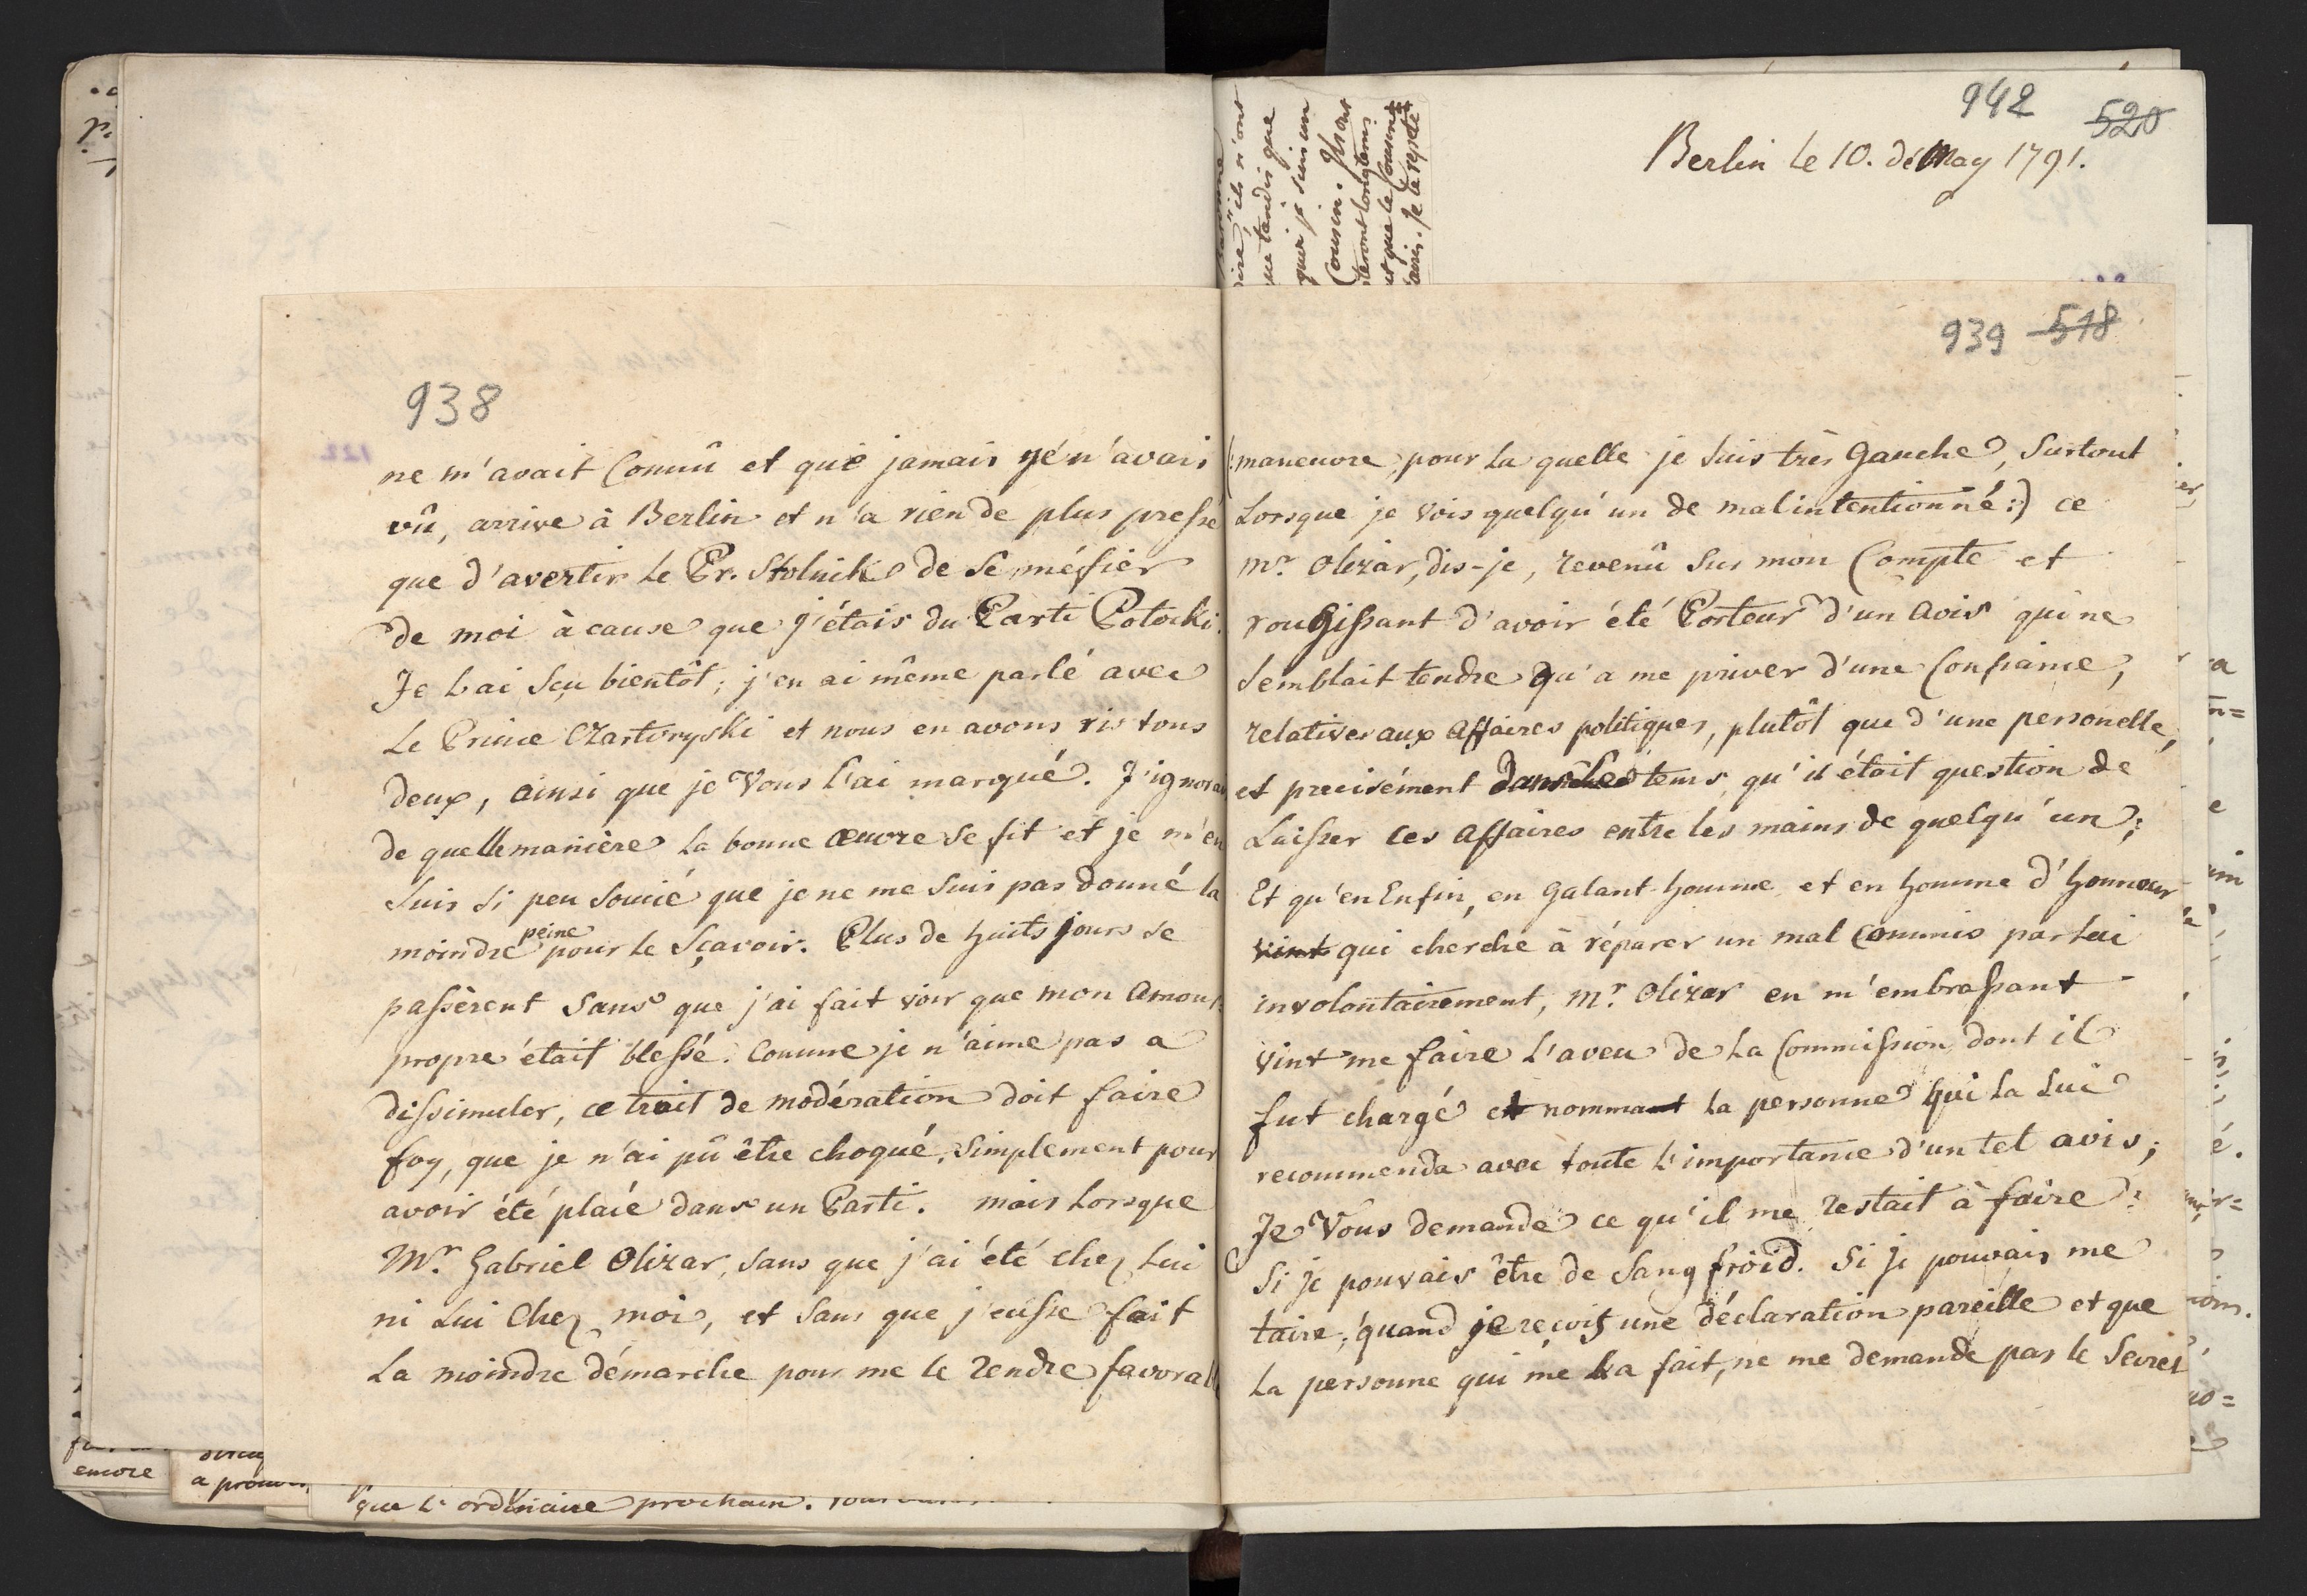 938
ne m'avait Connû et que jamais je n'avais
vû, arrive à Berlin et n'a rien de plus pressé
que d'avertir le Pr. Stolnik de se méfier
de moi à cause que j'étais du Parti Potocki.
Je l'ai sçu bientôt; j'en ai même parlé avec
le Prince Czartoryski et nous en avons ris tous
deux, ainsi que je Vous l'ai marqué. J'ignorai
de quelle manière la bonne œuvre se fit et je m'en
suis si peu soucié que je ne me suis pas donné la
moindre peine pour le Sçavoir. Plus de huits jours se
passèrent sans que j'ai fait voir que mon Amour
propre était blessé. Comme je n'aime pas a
dissimuler, ce trait de modération doit faire
foy, que je n'ai pû être choqué, simplement pour
avoir été placé dans un Parti. mais Lorsque
Mr. Gabriel Olizar, sans que j'ai été chez Lui
ni Lui Chez moi, et sans que j'eusse fait
La moindre démarche pour me le rendre favorabl
942 520
Berlin le 10. de May 1791.
ils n'ont
tandis que
je suis un
Cousin. Ils ont
longtems
et que le
Je le repete
939 518
(:maneuvre, pour la quelle je suis très Gauche, Surtout
Lorsque je Vois quelqu'un de mal intentionné:) ce
Mr. Olizar, dis-je, revenû sur mon Compte et
rougissant d'avoir été Porteur d'un avis qui ne
semblait tendre qu'a me priver d'une Confiance,
relatives aux affaires politiques, plutôt que d'une personelle,
et precisément dans les tems, qu'il était question de
Laisser ces affaires entre les mains de quelqu'un;
Et qu'en Enfin, en Galant-homme et en homme d'honneur
vint qui cherche à réparer un mal Commis par Lui
involontairement, Mr. Olizar en m'embrassant
vint me faire l'aveu de la Commission dont il
fut chargé et nommant la personne qui la Lui
recommenda avec toute l'importance d'un tel avis;
Je Vous demande ce qu'il me restait à faire?
Si je pouvais être de Sang froid. Si je pouvais me
taire, quand je reçois une déclaration pareille et que
la personne qui me l'a fait, ne me demande pas le Secret
encore
que l'ordinaire prochain.